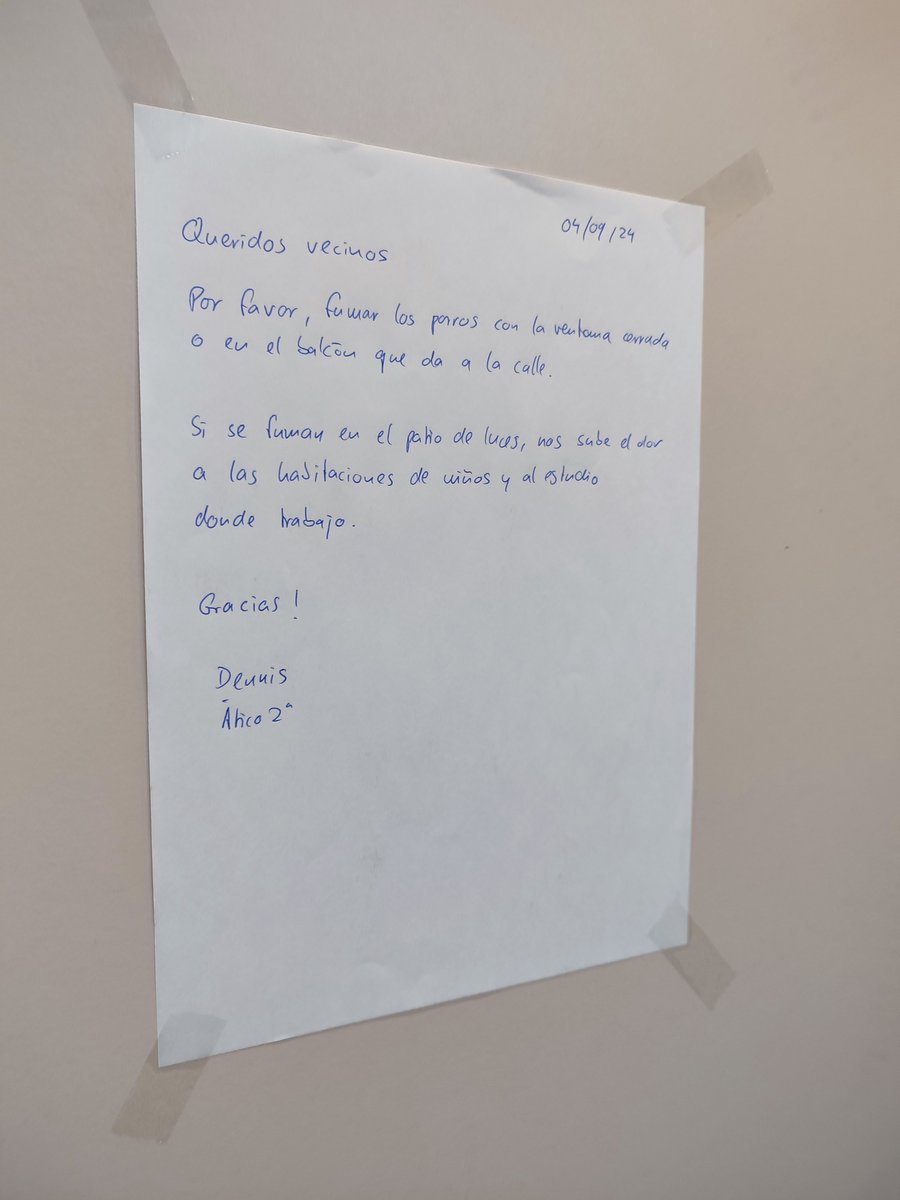 04/09/24
Queridos vecinos
Por favor, fumar los porros con la ventana cerrada
o en el balcón que da a la calle.
Si se fuman en el patio de luces, nos sube el olor
a las habitaciones de niños y al estudio
donde trabajo.
Gracias!
Dennis
Ático 2ª